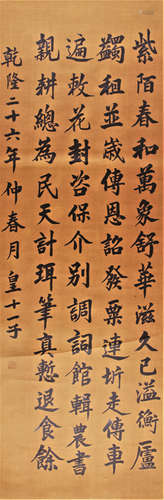 紫陌春和萬象舒華滋久已溢衡廬
蠲租並歲傳恩詔發粟連圻走傳車
遍敕花封咨保介別調詞館輯農書
親耕總為民天計珥筆真慙退食餘
乾隆二十六年仲春月皇十一子